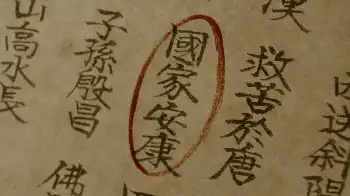 送斜陽
漢 救苦於唐
國家安康
子孫殷昌 佛
山高水長